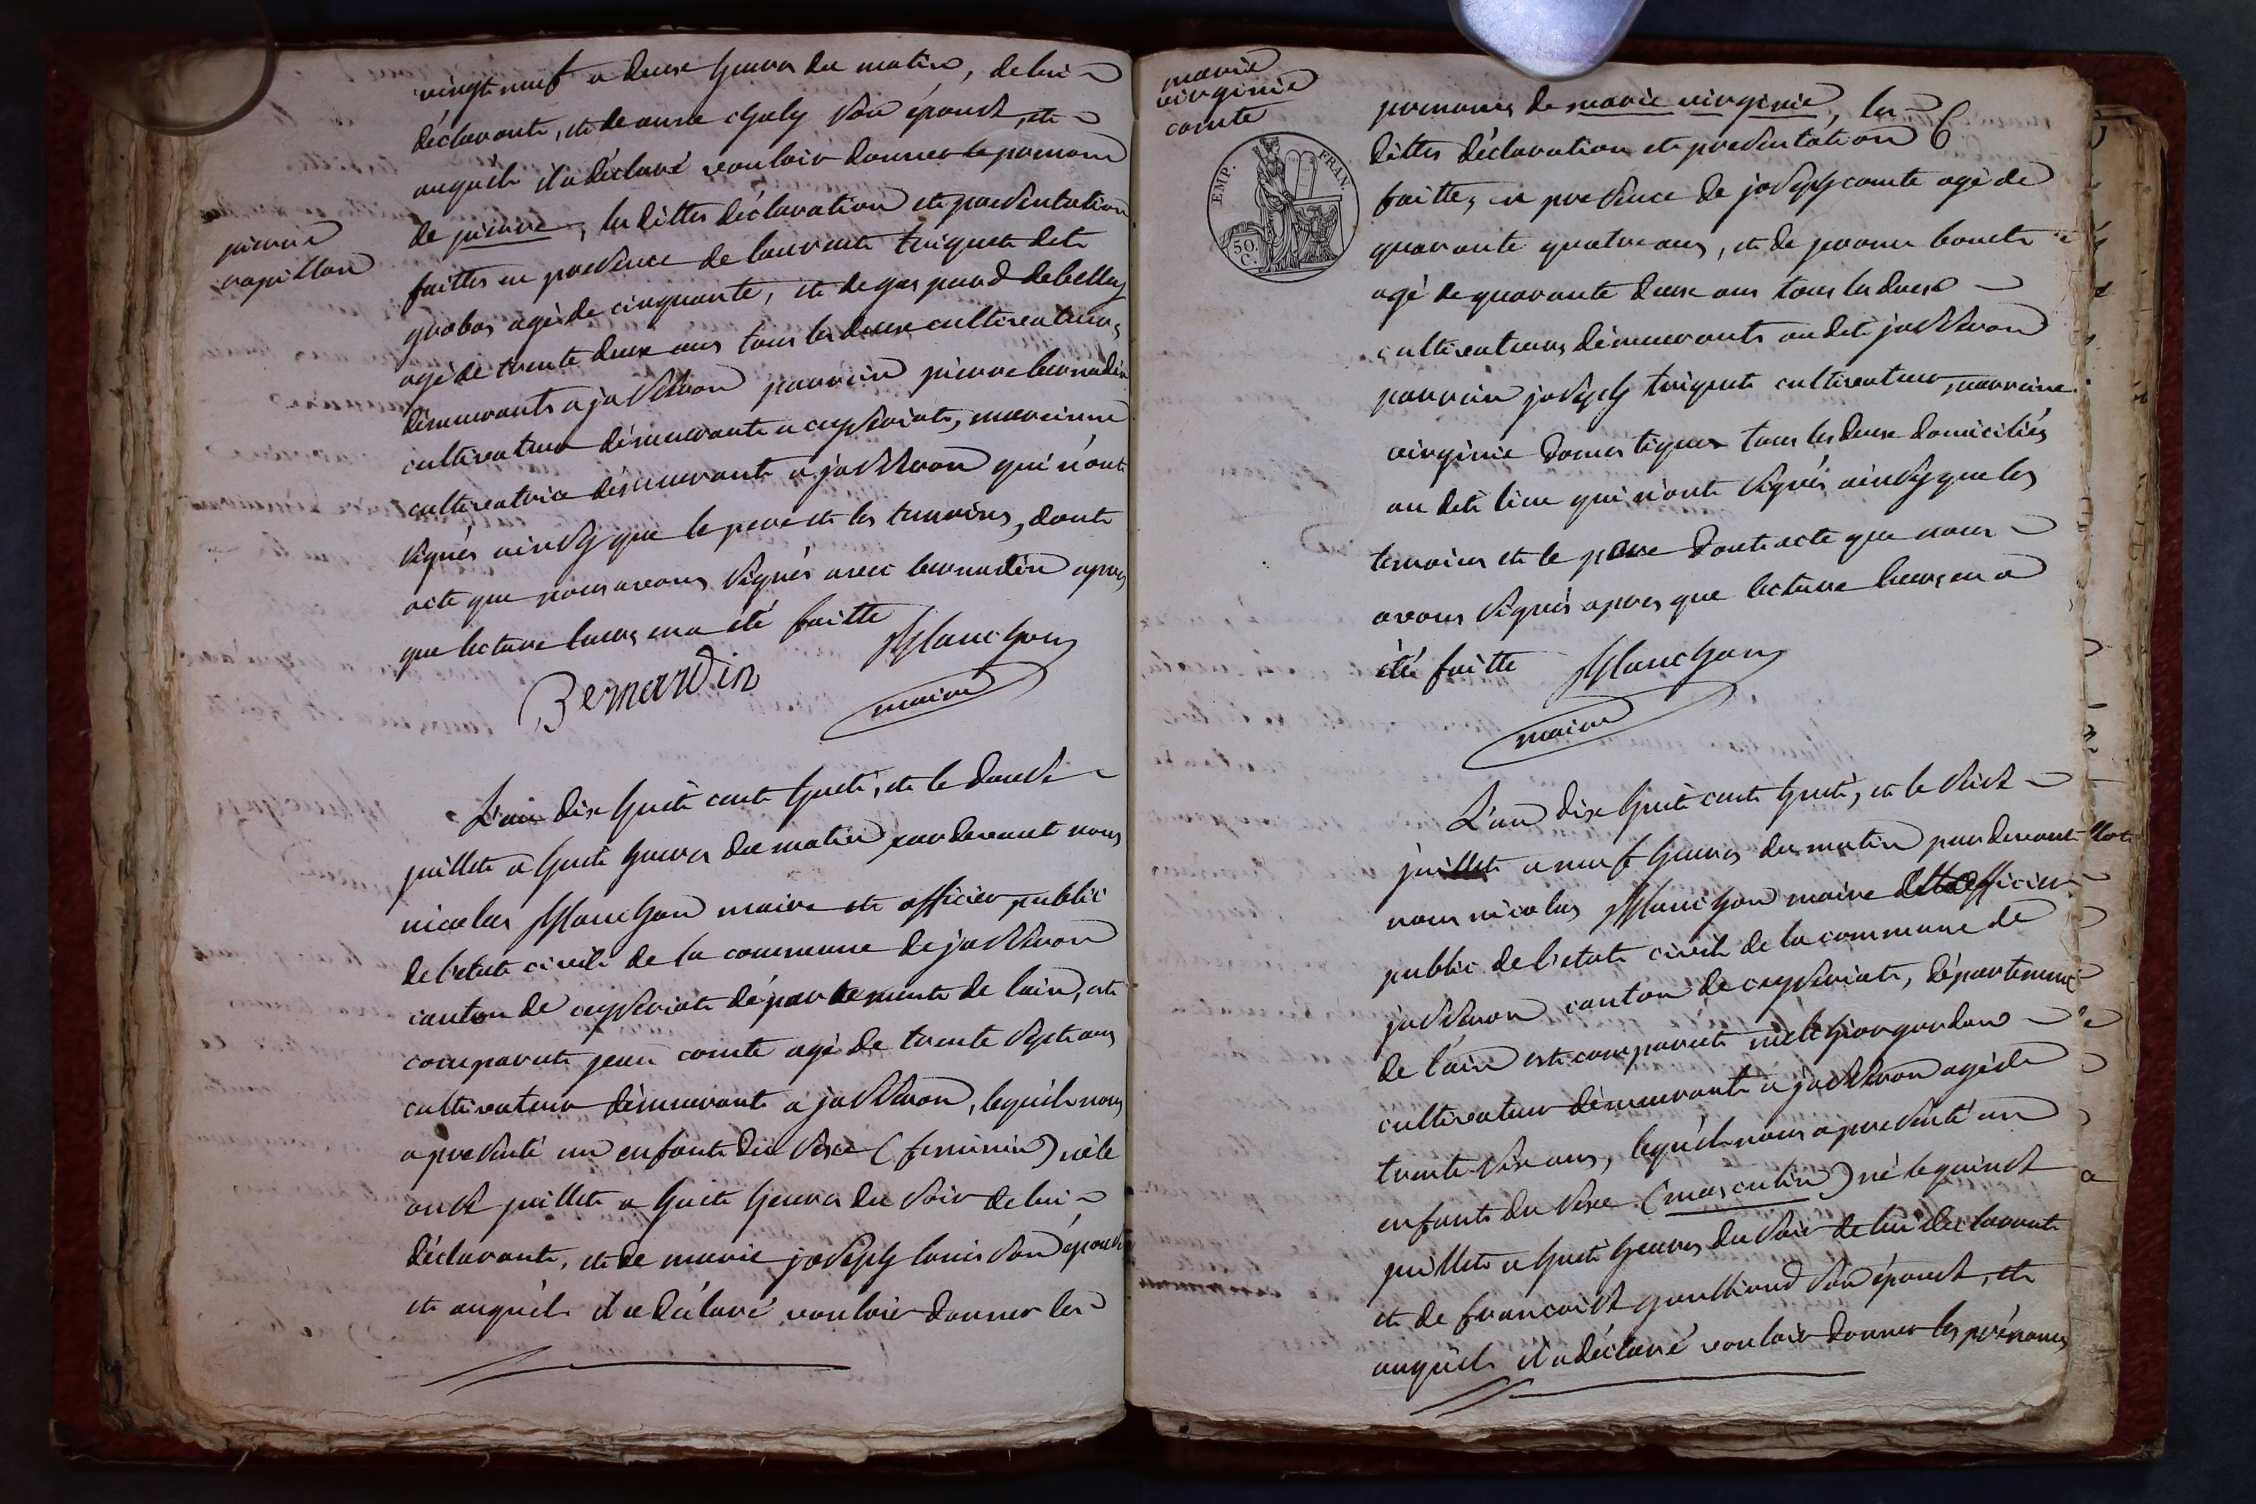 vingt neuf a deuxe heures du matin, de lui
déclarant, et de anne chaly son épouse, et
auquéle il a déclaré vouloir donner le prenom
de pierre, les dittes déclaration et presentation
pierre
papillon
faittes en presence de laurent triquet dit
grobas agé de cinquante, et de gaspard debelley
agé de trente deux ans tous les deux cultivateurs
démeurants a jasseron parrein pierre bernardin
cultivateur démeurant a ceyseriat, mareinne
cultivatrice démeurante a jasseron qui n'ont
signés ainsy que le pere et les temoins, dont
acte que nous avons signés avec bernardin apres
que lecture leurs en a été faitte
Planchon
Bernardin
maire
L'an dix huit cent huit, et le douse
juillet a huit heures du matin par devant nous
nicolas Planchon maire et officier public
de l'etat civile de la commune de jasseron
canton de ceyseriat département de lain, est
comparut jean comte agé de trente sept ans
cultivateur démeurant a jasseron, lequél nous
a presenté un enfant du sexe (feminin) né le
onse juillet a huit heures du soir de lui
déclarant, et de marie joseph louis son épouse
et auquél il a déclaré vouloir donner les
marie
virginie
comte
EMP. FRAN.
50. C.
prenoms de marie virginie, les
6
dittes déclaration et presentation
faittes en presence de joseph comte agé de
quarante quatre ans, et de pierre bouet
agé de quarante deux ans tous les deux
cultivateurs démeurants au dit jasseron
parrein joseph triquet cultivateur marraine
virginie domestiques tous les deux domiciliés
au dit lieu qui n'ont signés ainsy que les
temoins et le pere dont acte que nous
avons signés apres que lecture leurs en a
été faitte Planchon
maire
L'an dix huit cent huit, et le seise
juillet a neuf heures du matin par devant
nous nicolas Planchon maire et officier
public de l'etat civile de la commune de
jasseron canton de ceyseriat, département
de l'ain est comparut melchior gordon
cultivateur démeurant a jasseron agé de
trente six ans, lequél nous a presenté un
enfant du sexe (masculin) né le quinse
juillet a huit heures du soir de lui déclarant
et de francoise son épouse, et
auquél il a déclaré vouloir donner les prénoms